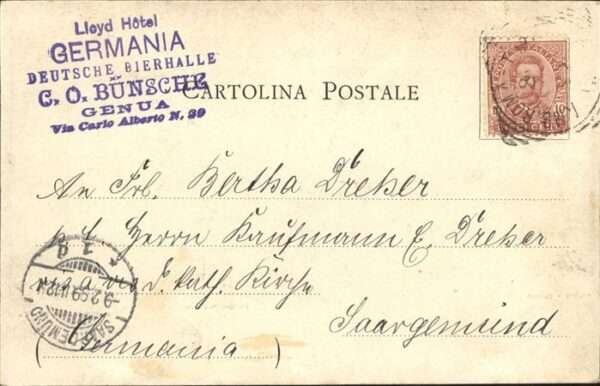 Lloyd Hôtel
GERMANIA
DEUTSCHE BIERHALLE
C. O. BÜNSCHE
GENUA
Via Carlo Alberto N. 39
CARTOLINA POSTALE
An Frl. Bertha Dreher
Herrn Kaufmann E. Dreher
vis à vis d. kath. Kirche
Saargemünd
(Germania)
SAARGEMÜND